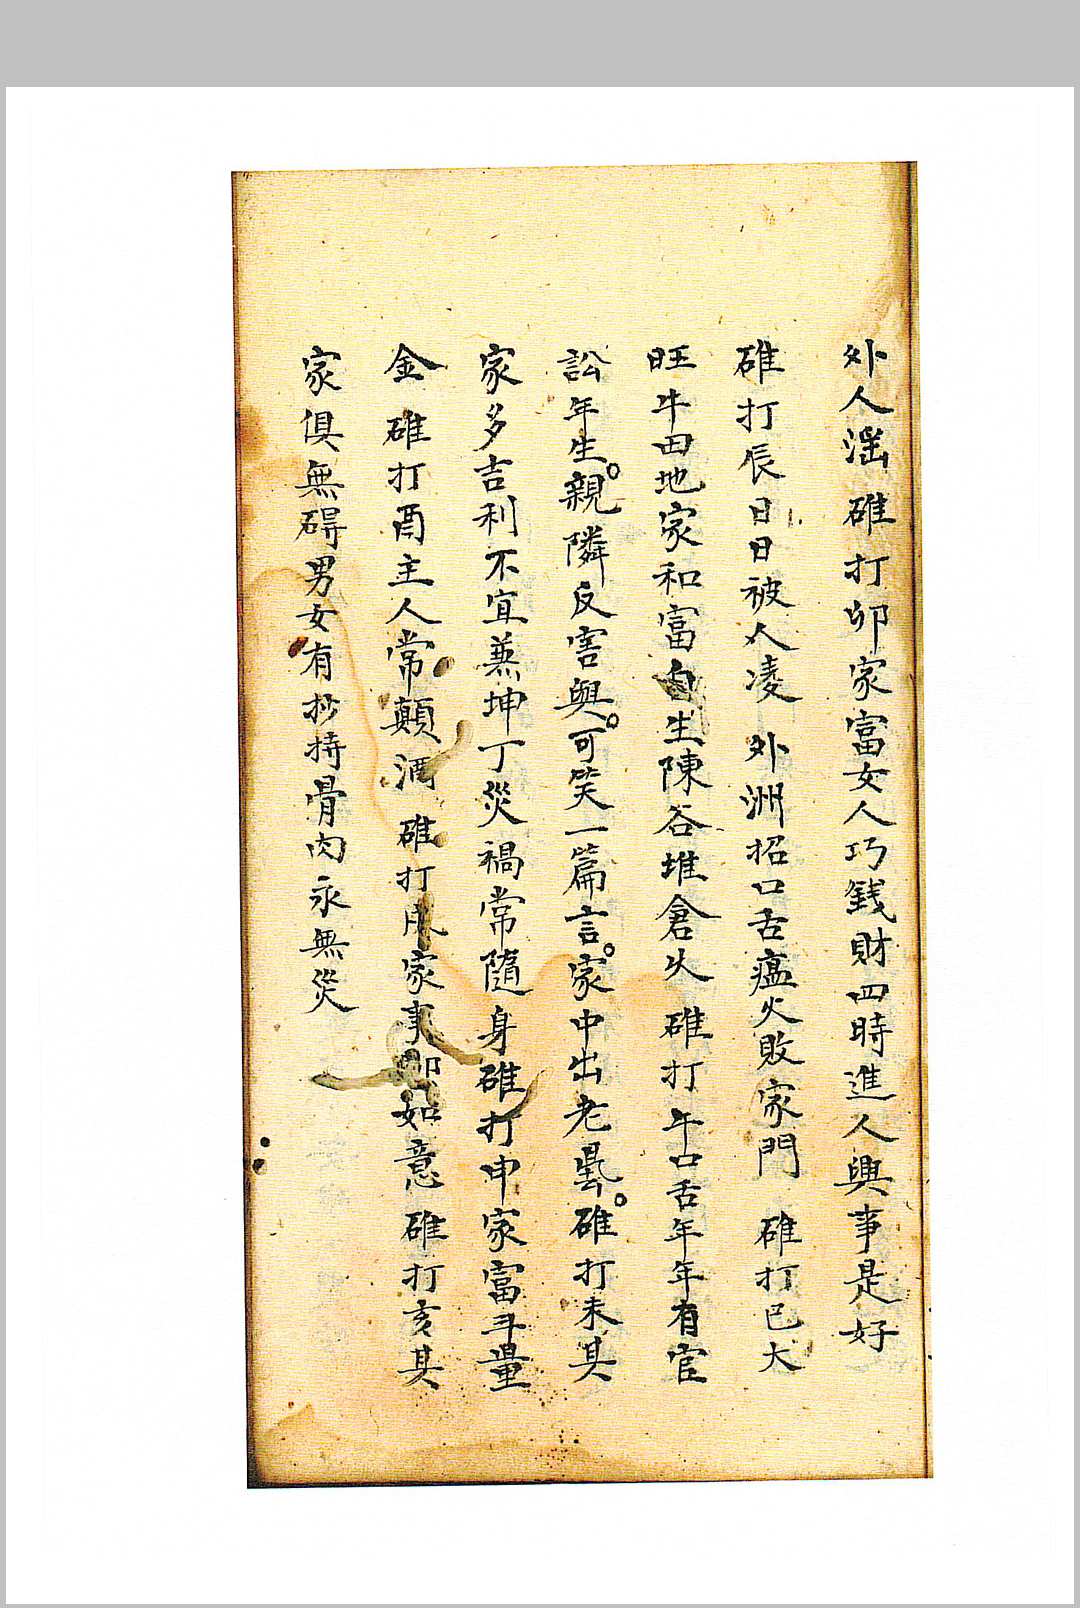 外人滛 碓打卯家富女人巧錢財四時進人興事是好
碓打辰日日被人凌 外洲招口舌瘟火敗家門 碓打巳大
旺牛田地家和富自生陳谷堆倉火 碓打午口舌年年有官
訟年生。親隣反害與。可笑一篇言。家中出老。碓打未其
家多吉利不宜兼坤丁災禍常隨身碓打申家富斗量
金 碓打酉主人常顛酒 碓打戌家事即如意 碓打亥其
家俱無碍男女有抄持骨肉永無災